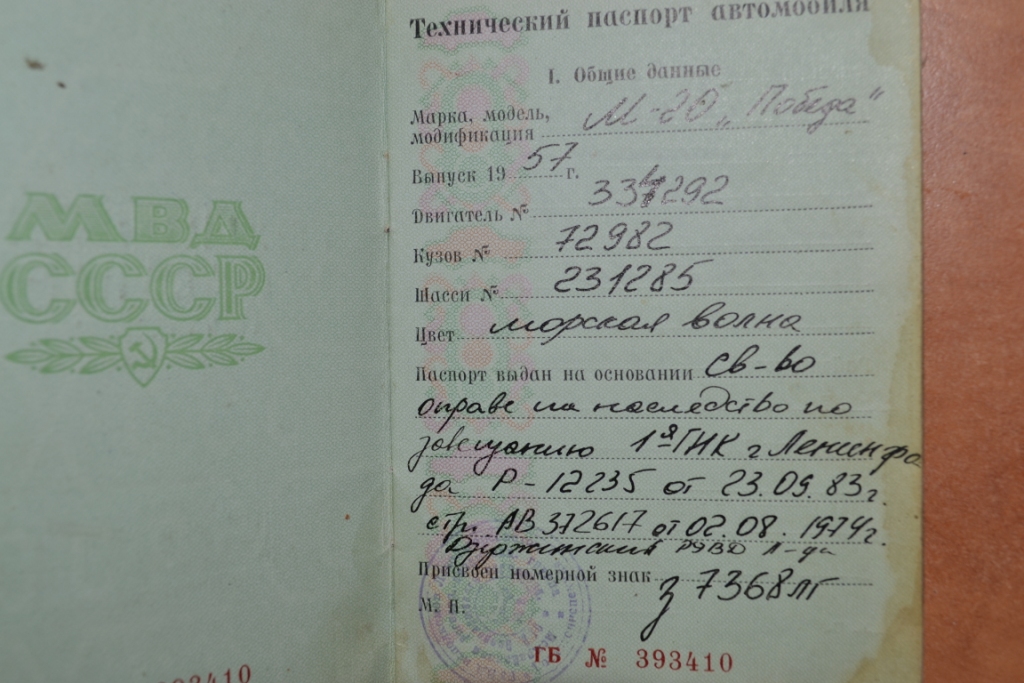 МВД
СССР
Технический паспорт автомобиля
I. Общие данные
Марка, модель, модификация М-20 „Победа"
Выпуск 1957 г.
Двигатель № 331292
Кузов № 72982
Шасси № 231285
Цвет морская волна
Паспорт выдан на основании св-во
о праве на наследство по
завещанию 1ая ГНК г Ленингра
да Р-12235 от 23.09.83г.
стр. АВ 372617 от 02.08.1974г.
Дзержинский РУВД Л-да
Присвоен номерной знак з 7368 ЛГ
М. П.
ГБ № 393410
393410